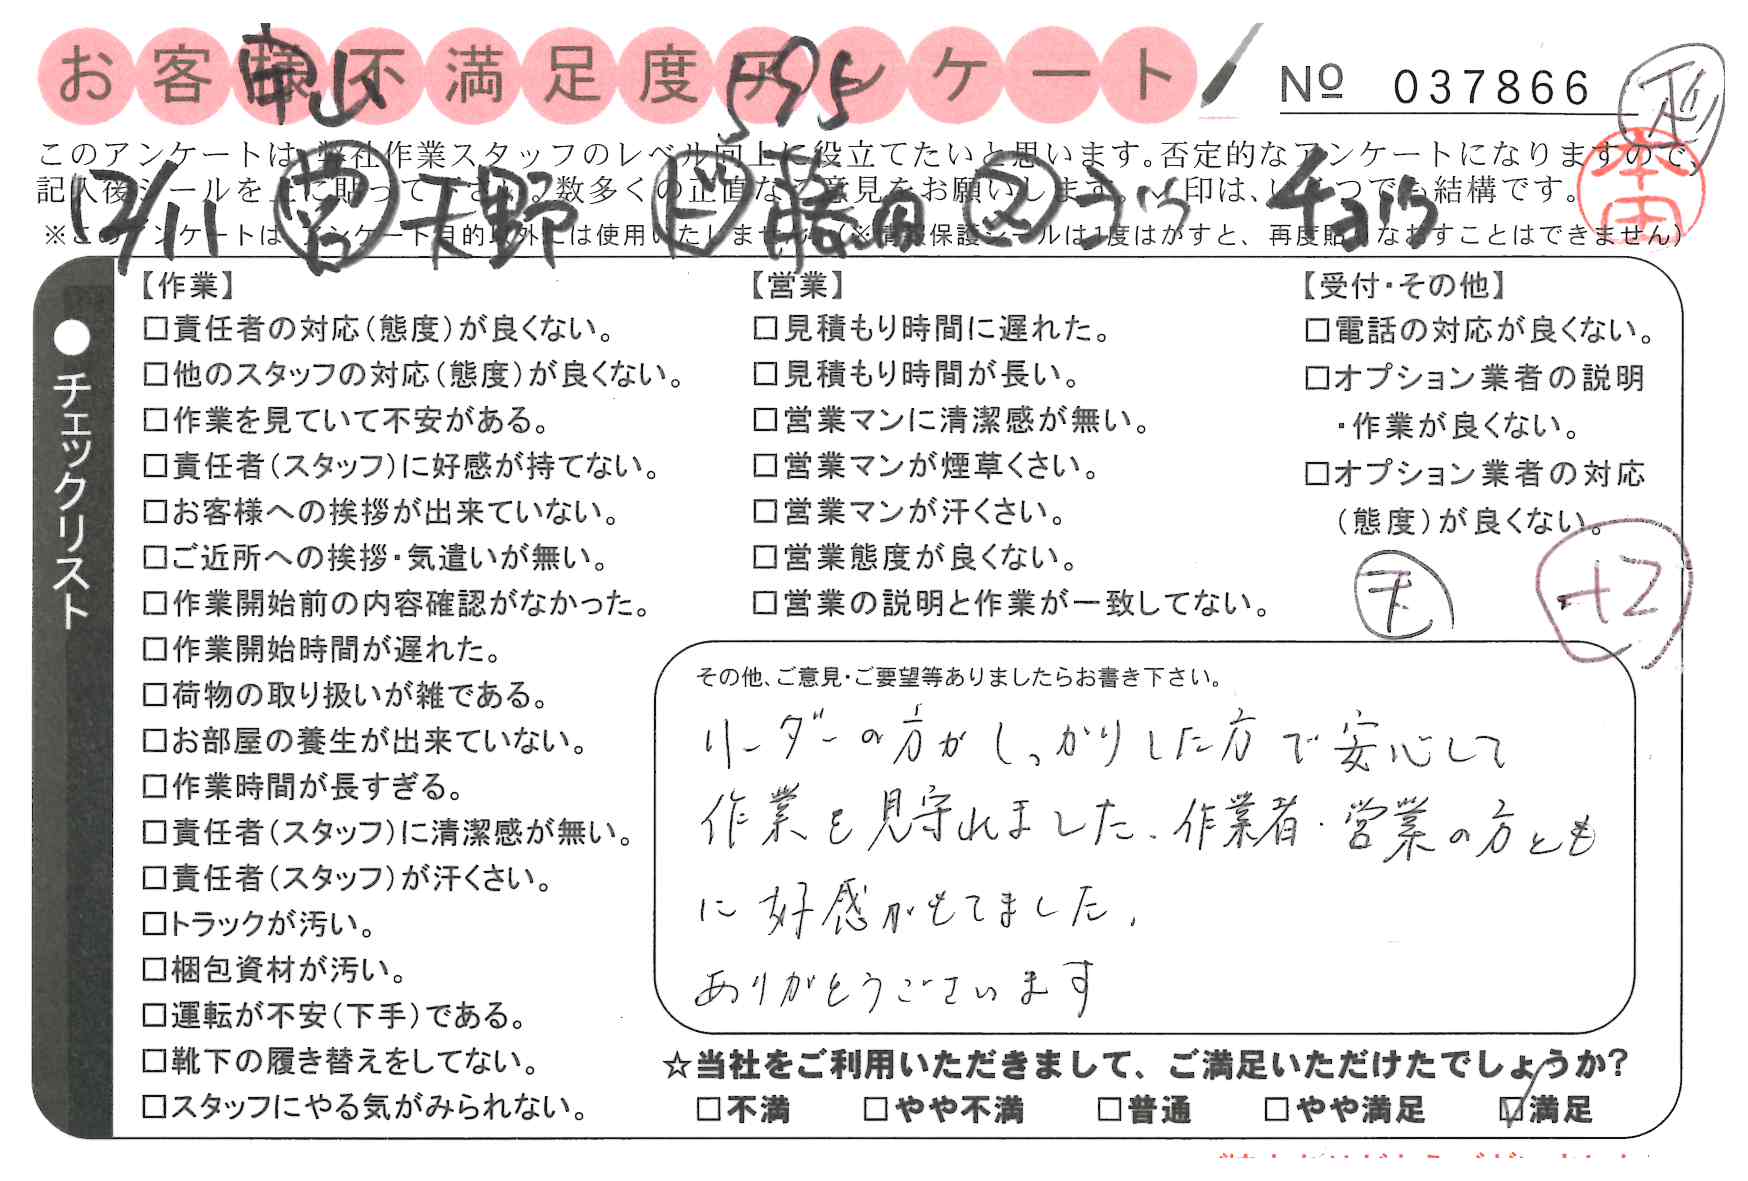 お客様不満足度アンケート
№ 037866
このアンケートは、弊社作業スタッフのレベル向上に役立てたいと思います。否定的なアンケートになりますので、
記入後シールを上に貼って下さい。数多くの正直なご意見をお願いします。✓印は、いくつでも結構です。
※このアンケートは、アンケート目的以外には使用いたしません。(※情報保護シールは1度はがすと、再度貼りなおすことはできません)
12/11 営 天野 ド 藤田
本田
●チェックリスト
【作業】
□責任者の対応(態度)が良くない。
□他のスタッフの対応(態度)が良くない。
□作業を見ていて不安がある。
□責任者(スタッフ)に好感が持てない。
□お客様への挨拶が出来ていない。
□ご近所への挨拶・気遣いが無い。
□作業開始前の内容確認がなかった。
□作業開始時間が遅れた。
□荷物の取り扱いが雑である。
□お部屋の養生が出来ていない。
□作業時間が長すぎる。
□責任者(スタッフ)に清潔感が無い。
□責任者(スタッフ)が汗くさい。
□トラックが汚い。
□梱包資材が汚い。
□運転が不安(下手)である。
□靴下の履き替えをしてない。
□スタッフにやる気がみられない。
【営業】
□見積もり時間に遅れた。
□見積もり時間が長い。
□営業マンに清潔感が無い。
□営業マンが煙草くさい。
□営業マンが汗くさい。
□営業態度が良くない。
□営業の説明と作業が一致してない。
【受付・その他】
□電話の対応が良くない。
□オプション業者の説明
・作業が良くない。
□オプション業者の対応
(態度)が良くない。
+2
その他、ご意見・ご要望等ありましたらお書き下さい。
リーダーの方がしっかりした方で安心して
作業を見守れました。作業者・営業の方とも
に好感がもてました。
ありがとうございます
☆当社をご利用いただきまして、ご満足いただけたでしょうか?
□不満 □やや不満 □普通 □やや満足 ☑満足